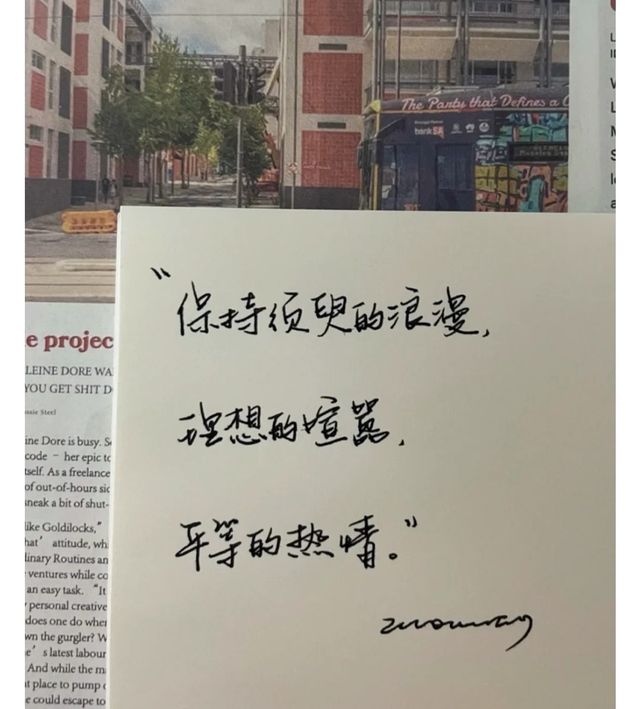 The Party that Defines a
bankSA
“保持须臾的浪漫,
理想的喧嚣,
平等的热情。”
e projec
LEINE DORE WA
YOU GET SHIT D
ssie Steel
ine Dore is busy. S
code – her epic to
tself. As a freelance
of out-of-hours sid
sneak a bit of shut-
like Goldilocks,”
hat’ attitude, wh
linary Routines an
ventures while co
an easy task. “It
personal creative
does one do when
wn the gurgler? W
e’s latest labour
And while the m
t place to pump o
e could escape to